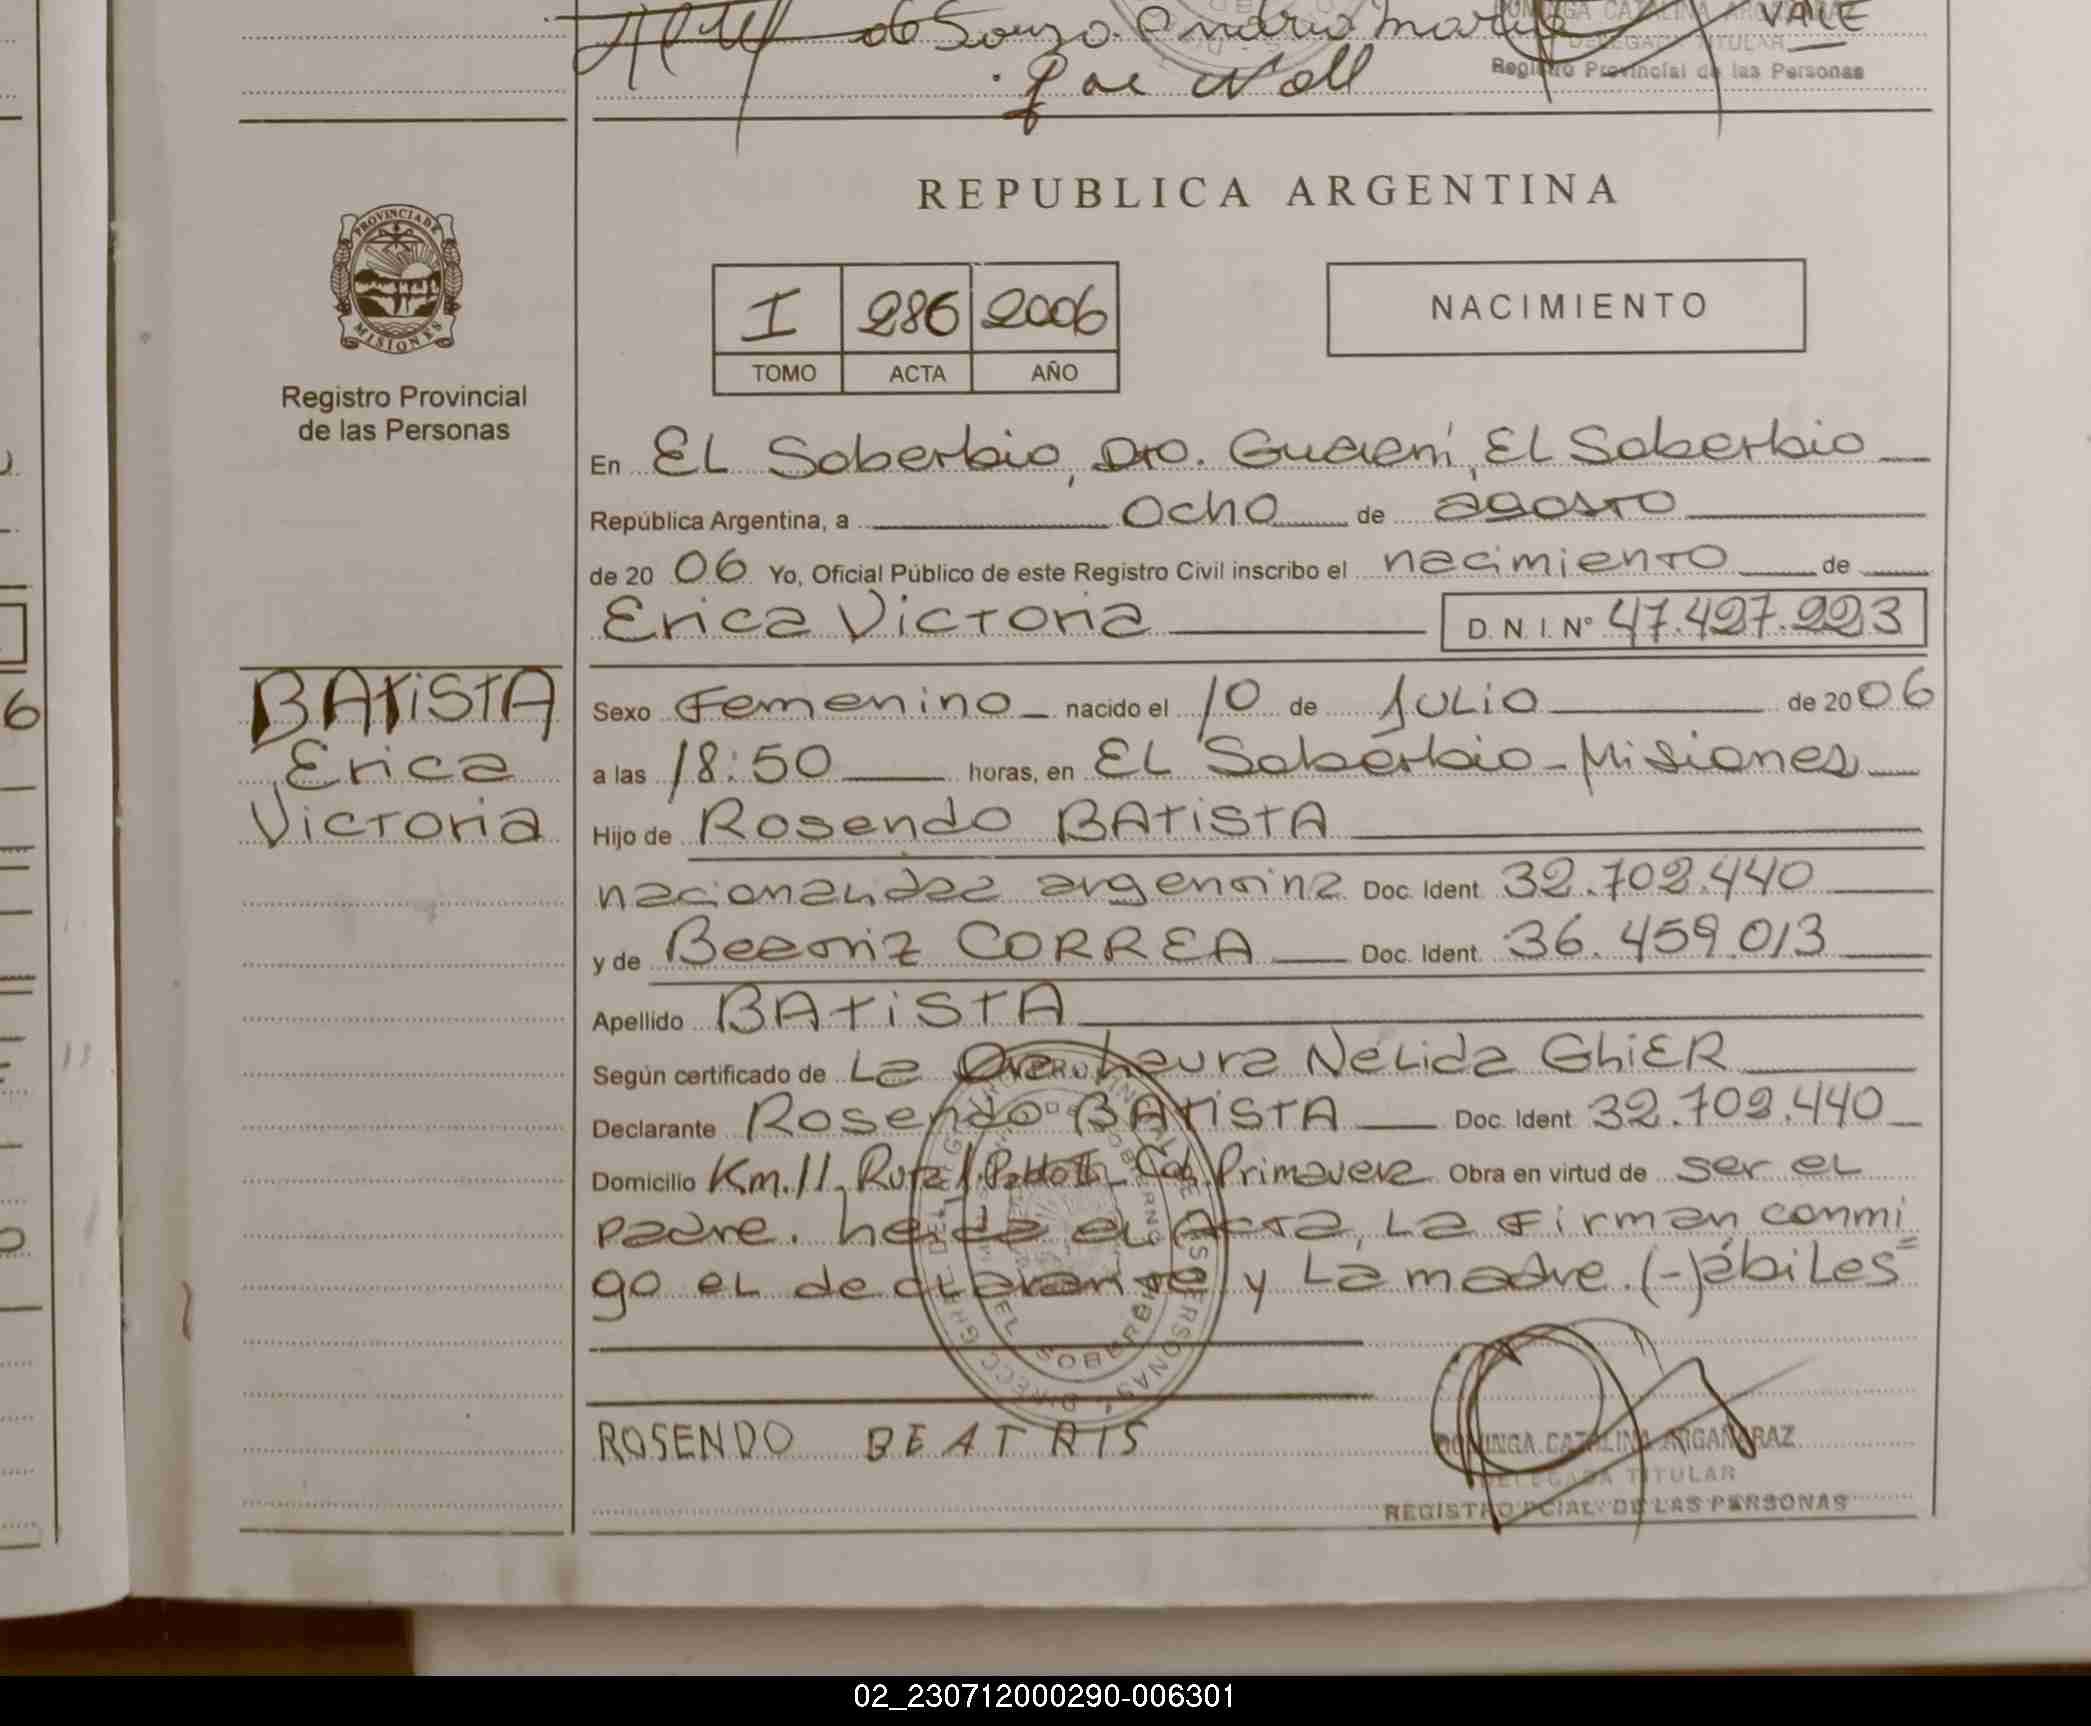 de Souza Andria Maria
VALE
Registro Provincial de las Personas
PROVINCIA DE
MISIONES
Registro Provincial
de las Personas
REPUBLICA ARGENTINA
I 286 2006
TOMO ACTA AÑO
NACIMIENTO
En EL Soberbio, Dto. Guaraní, EL Soberbio
República Argentina, a ocho de agosto
de 2006 Yo, Oficial Público de este Registro Civil inscribo el nacimiento de
Erica Victoria D. N. I. Nº 47.427.223
BATISTA
Erica
Victoria
Sexo Femenino nacido el 10 de Julio de 2006
a las 18:50 horas, en EL Soberbio - Misiones
Hijo de Rosendo BATISTA
argentina Doc. Ident. 32.702.440
y de Beatriz CORREA Doc. Ident. 36.459.013
Apellido BATISTA
Según certificado de La Dra. Laura Nélida GhiER
Declarante Rosendo BATISTA Doc. Ident. 32.702.440
Domicilio Km. 11, Ruta Col. Primavera Obra en virtud de ser el
padre. Leída el Acta, La firman conmi
go el declarante y La madre. (-) ábiles=
ROSENDO BEATRIS
EL SOBERBIO
DOMINGA CATALINA ARGAÑARAZ
DELEGADA TITULAR
REGISTRO PCIAL. DE LAS PERSONAS
02_230712000290-006301